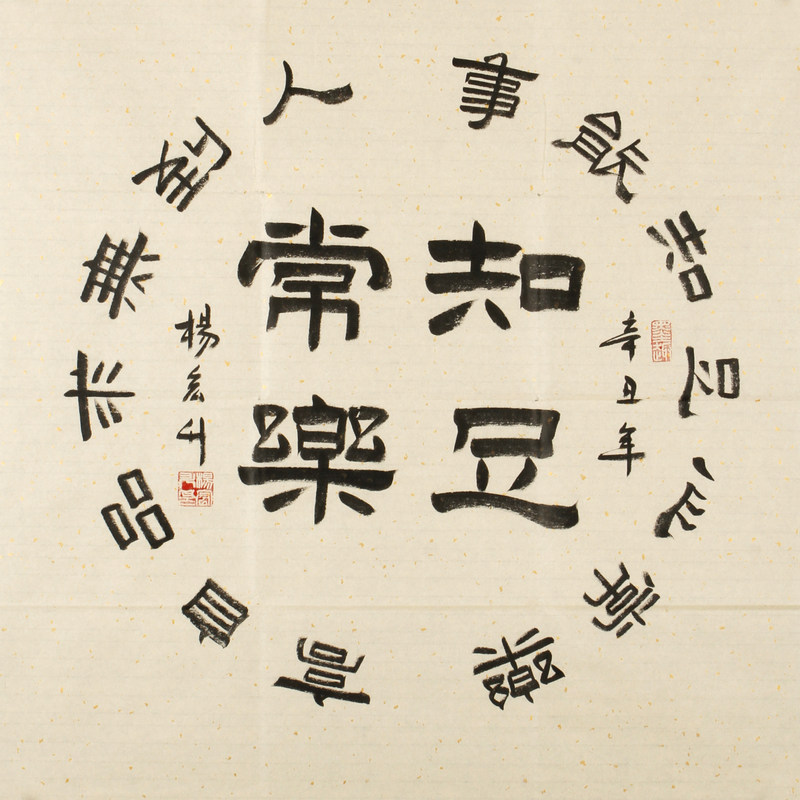 知足
常樂
事能知足心常樂
人到無求品自高
辛丑年
楊宏升